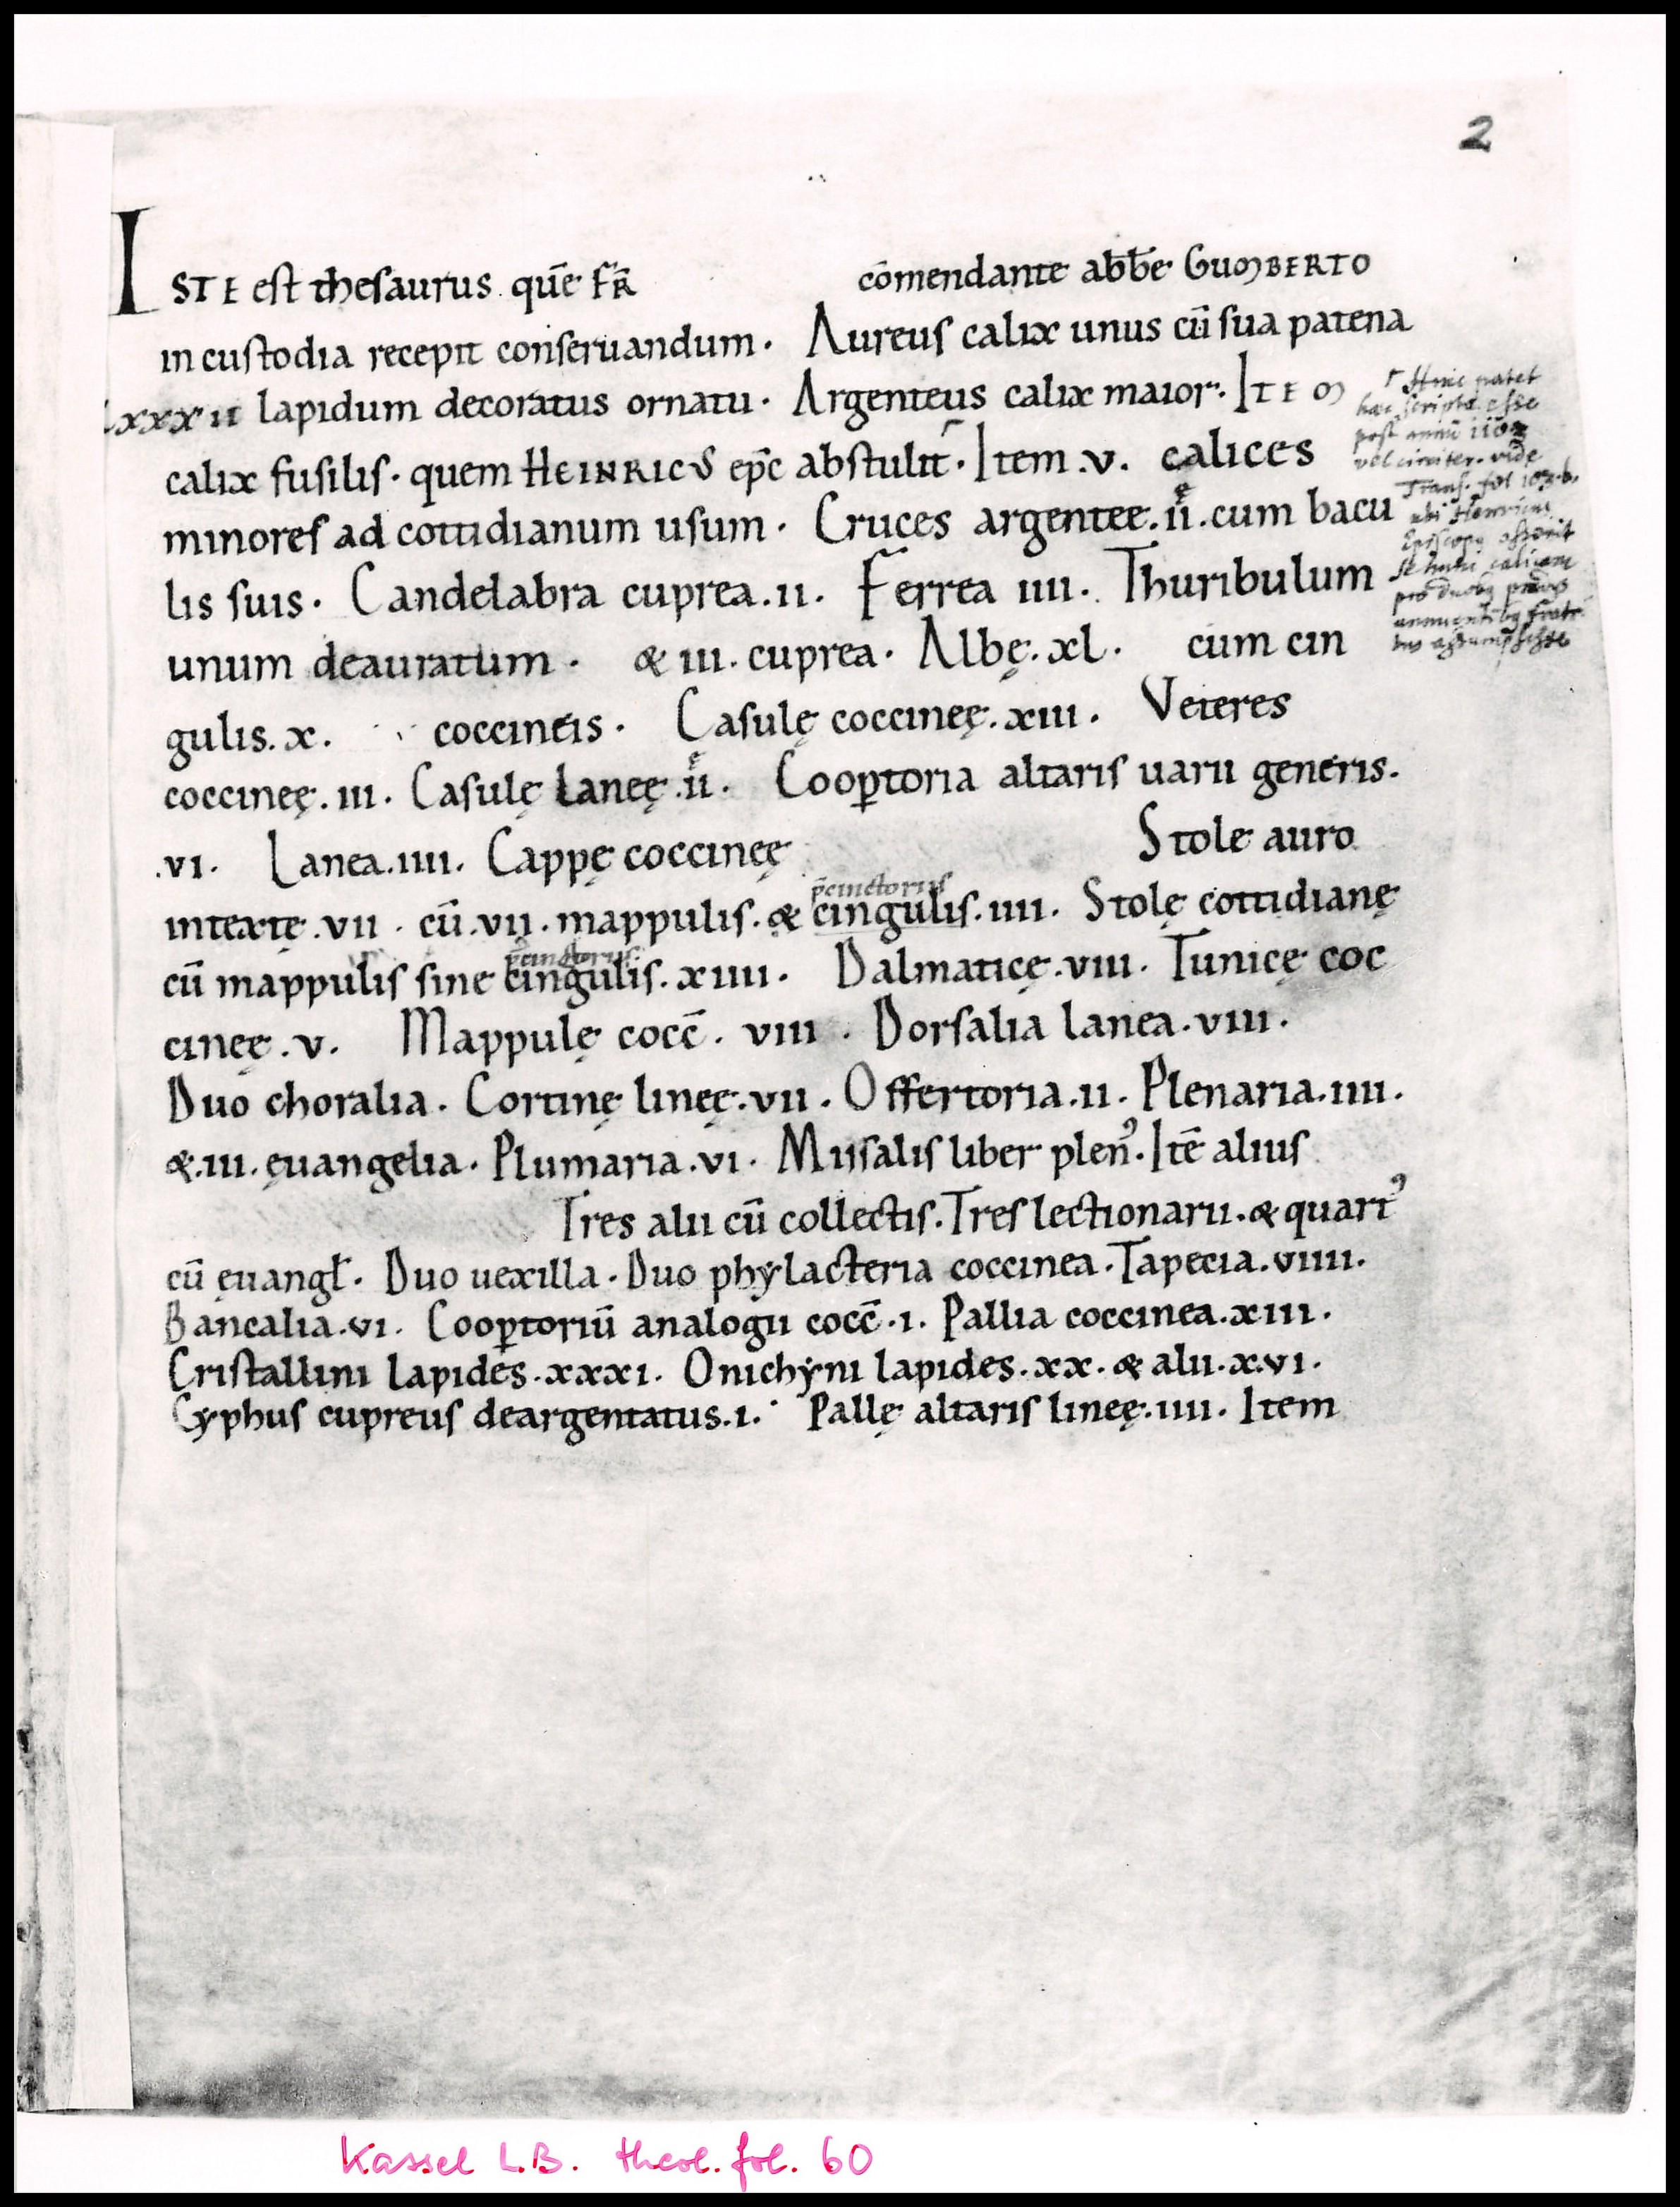 2
ISTE est thesaurus quē FR̄ cōmendante abbē GUMBERTO
in custodia recepit conseruandum. Aureus calix unus cū sua patena
Lxxxii lapidum decoratus ornatu. Argenteus calix maior. ITEM
calix fusilis. quem HEINRICUS ep̄c abstulit. Item .v. calices
minores ad cottidianum usum. Cruces argentee .ii. cum bacu
lis suis. Candelabra cuprea .ii. Ferrea iiii. Thuribulum
unum deauratum. & iii. cuprea. Albę. xl. cum cin
gulis. x. coccineis. Casulę coccineę. xiii. Veteres
coccineę. iii. Casulę laneę .ii. Coop̄toria altaris uarii generis.
.vi. Lanea. iiii. Cappę coccineę Stole auro
p̄cinctoriis
intextę .vii. cū .vii. mappulis. & cingulis. iiii. Stolę cottidianę
p̄cinctoriis
cū mappulis sine cingulis. xiiii. Dalmaticę. viii. Tunicę coc
cineę .v. Mappulę cocc̄. viii. Dorsalia lanea. viii.
Duo choralia. Cortinę lineę. vii. Offertoria. ii. Plenaria. iiii.
&. iii. ęuangelia. Plumaria. vi. Missalis liber plenꝰ. Itē alius
Tres alii cū collectis. Tres lectionarii. & quartꝰ
cū ęuangł. Duo uexilla. Duo phylacteria coccinea. Tapecia. viiii.
Bancalia. vi. Coop̄toriū analogii cocc̄. i. Pallia coccinea. xiii.
Cristallini lapides. xxxi. Onichyni lapides. xx. & alii. x.vi.
Cyphus cupreus deargentatus. i. Pallę altaris lineę. iiii. Item
Hinc patet
hæc scripta esse
post annū
vel circiter. vide
Transf. fol
ubi Henricus
Episcopꝰ asserit
se calicem
pro duobꝰ
annuentibꝰ fratri
bus assumpsisse
Kassel L.B. theol. fol. 60